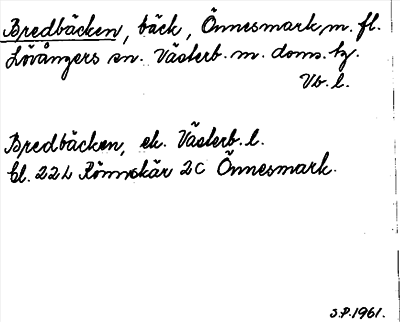 Bredbäcken, bäck, Önnesmark, m. fl.
Lövångers sn. Västerb. m. doms. hg.
Vb. l.
Bredbäcken, ek. Västerb. l.
bl. 22L Rönnskär 2c Önnesmark.
S.P. 1961.